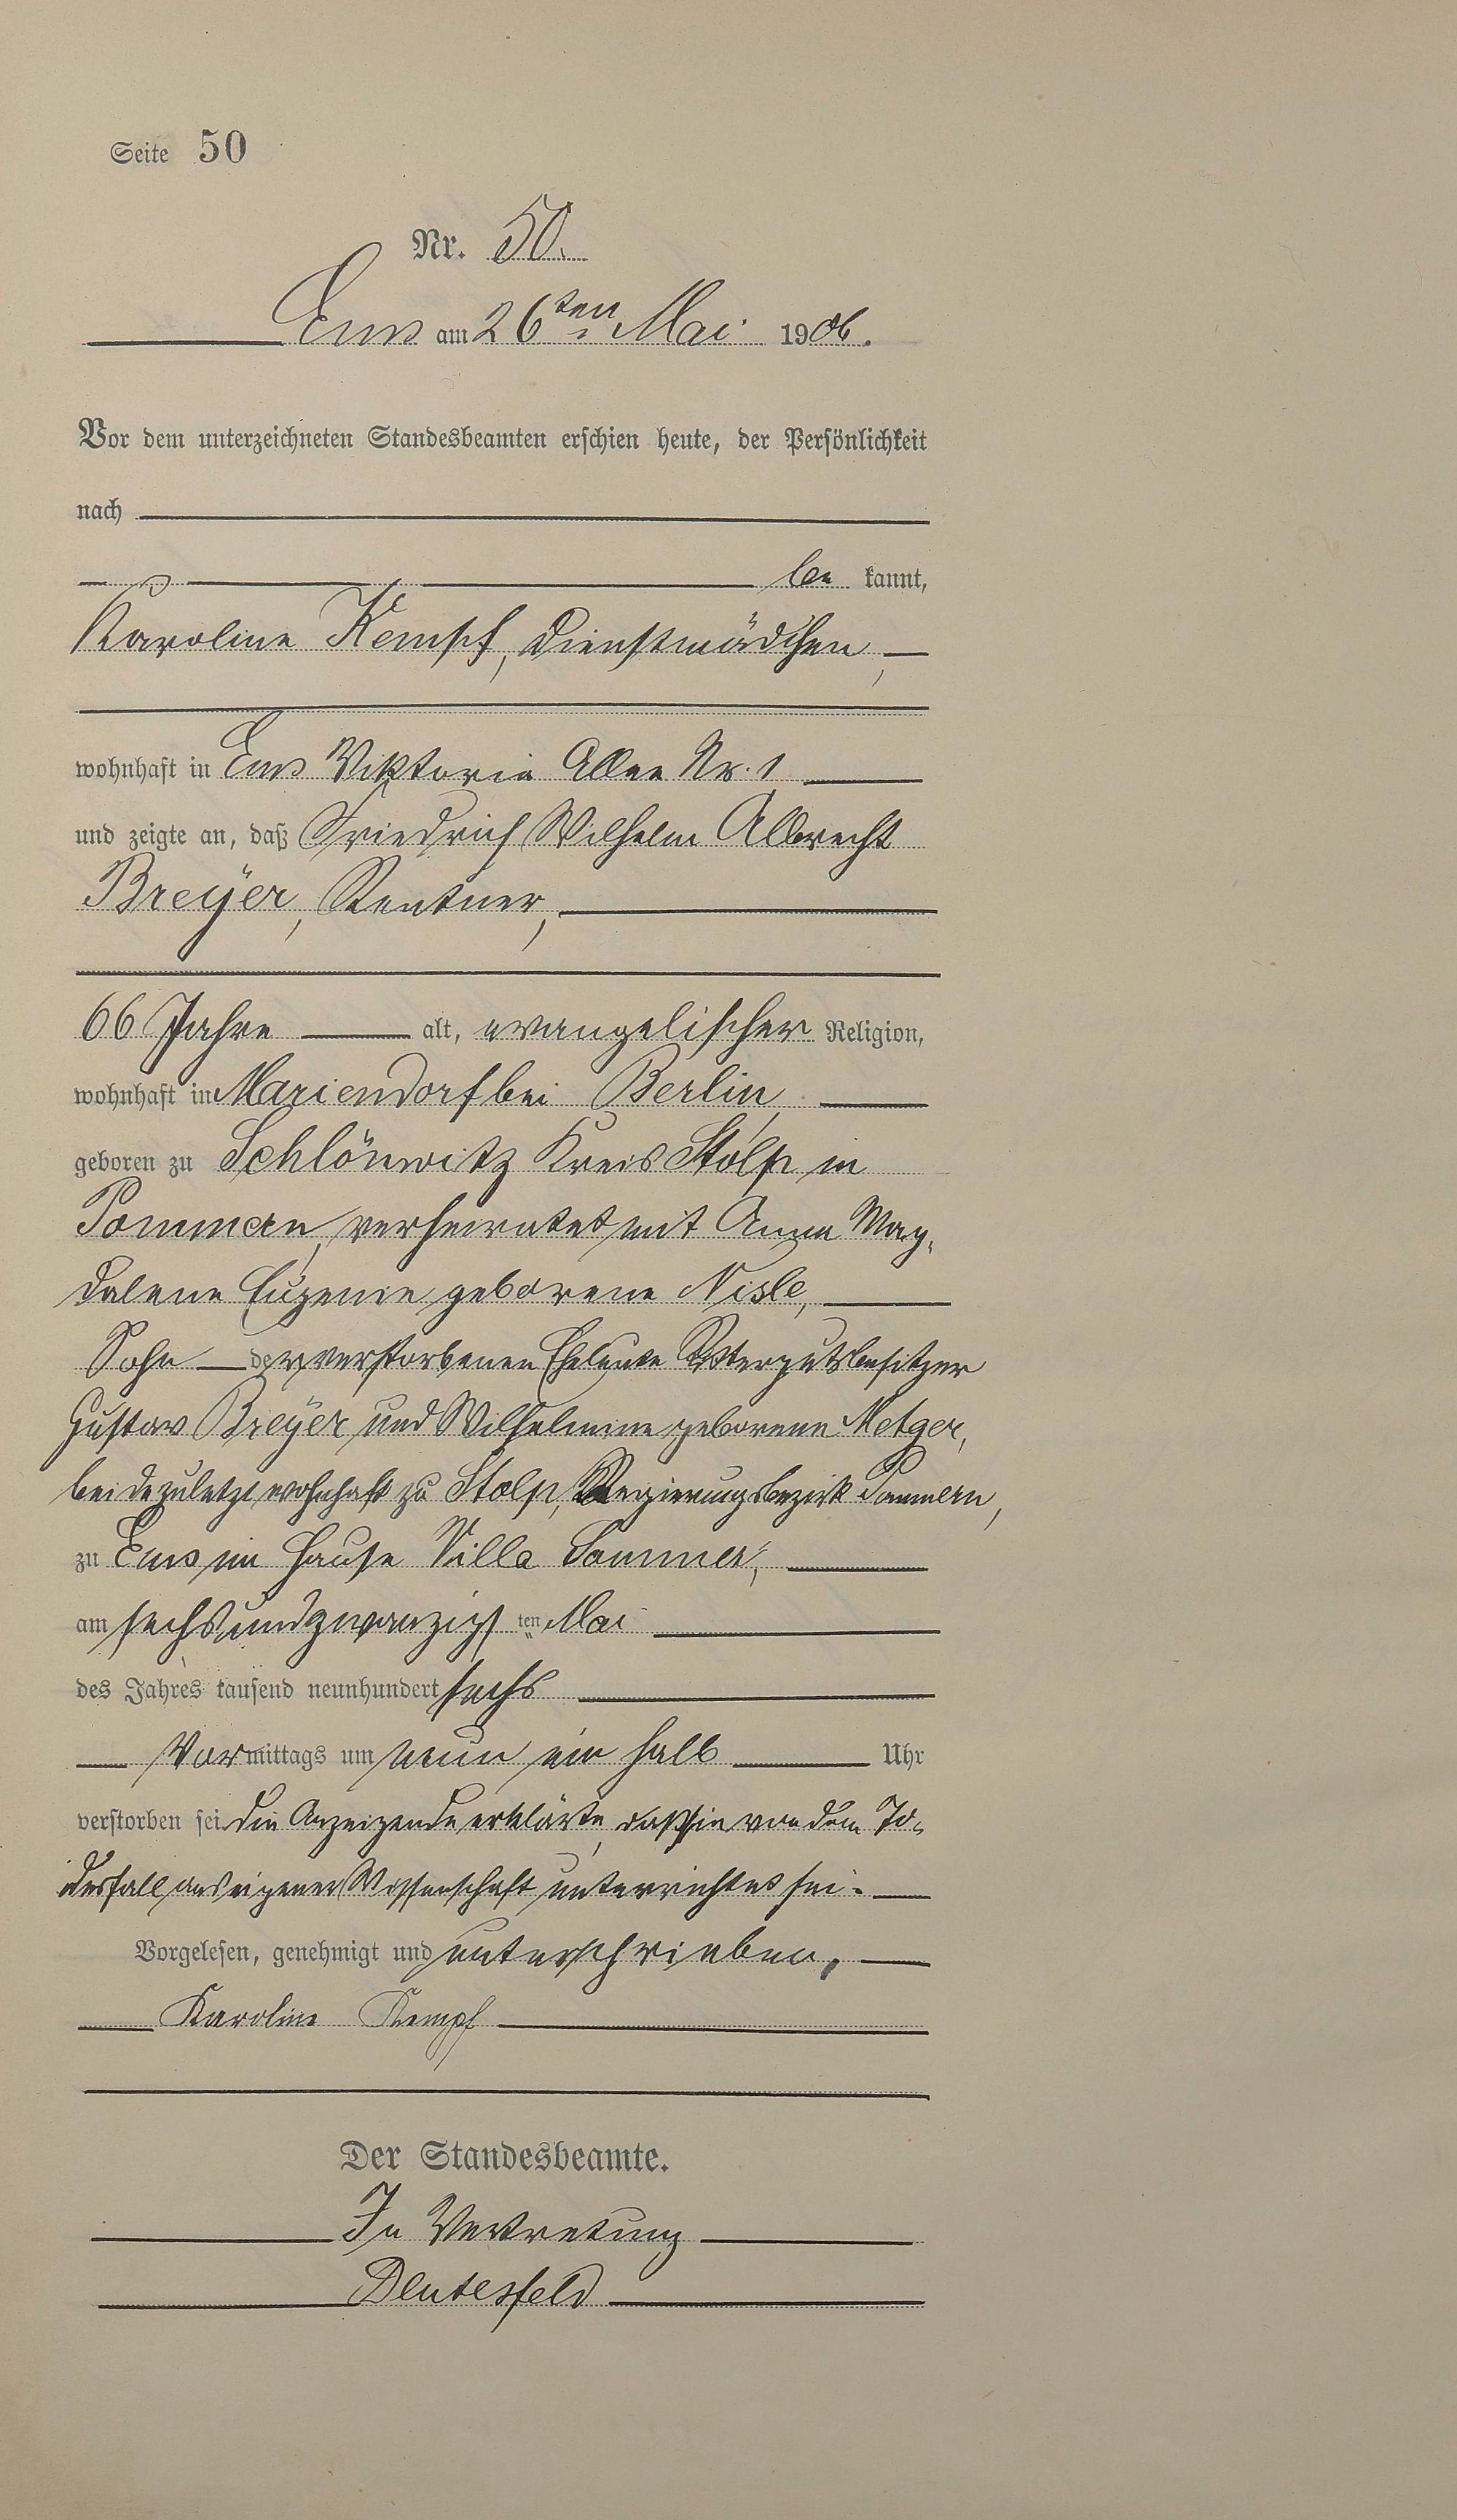 Seite 50
Nr. 50.
Ems am 26ten Mai 1906.
Vor dem unterzeichneten Standesbeamten erschien heute, der Persönlichkeit
nach
be kannt,
Karoline Kempf, Dienstmädchen,
wohnhaft in Ems Viktoria Allee Nr. 1
und zeigte an, daß Friedrich Wilhelm Albrecht
Breÿer, Rentner,
66 Jahre alt, evangelischer Religion,
wohnhaft in Mariendorf bei Berlin,
geboren zu Schlönwitz Kreis Stolp in
Pommern, verheiratet mit Anna Mag-
dalene Eugenie geborene Nisle,
Sohn der verstorbenen Eheleute Rittergutsbesitzer
Gustav Breÿer und Wilhelmine geborene Metger,
beide zuletzt wohnhaft zu Stolp, Regierungsbezirk Pommern,
zu Ems im Hause Villa Sommer,
am sechsundzwanzigsten Mai
des Jahres tausend neunhundert sechs
Vormittags um neun ein halb Uhr
verstorben sei. Die Anzeigende erklärte, daß sie von dem To-
desfall aus eigener Wissenschaft unterrichtet sei.
Vorgelesen, genehmigt und unterschrieben,
Karoline Kempf
Der Standesbeamte.
In Vertretung
Deutesfeld